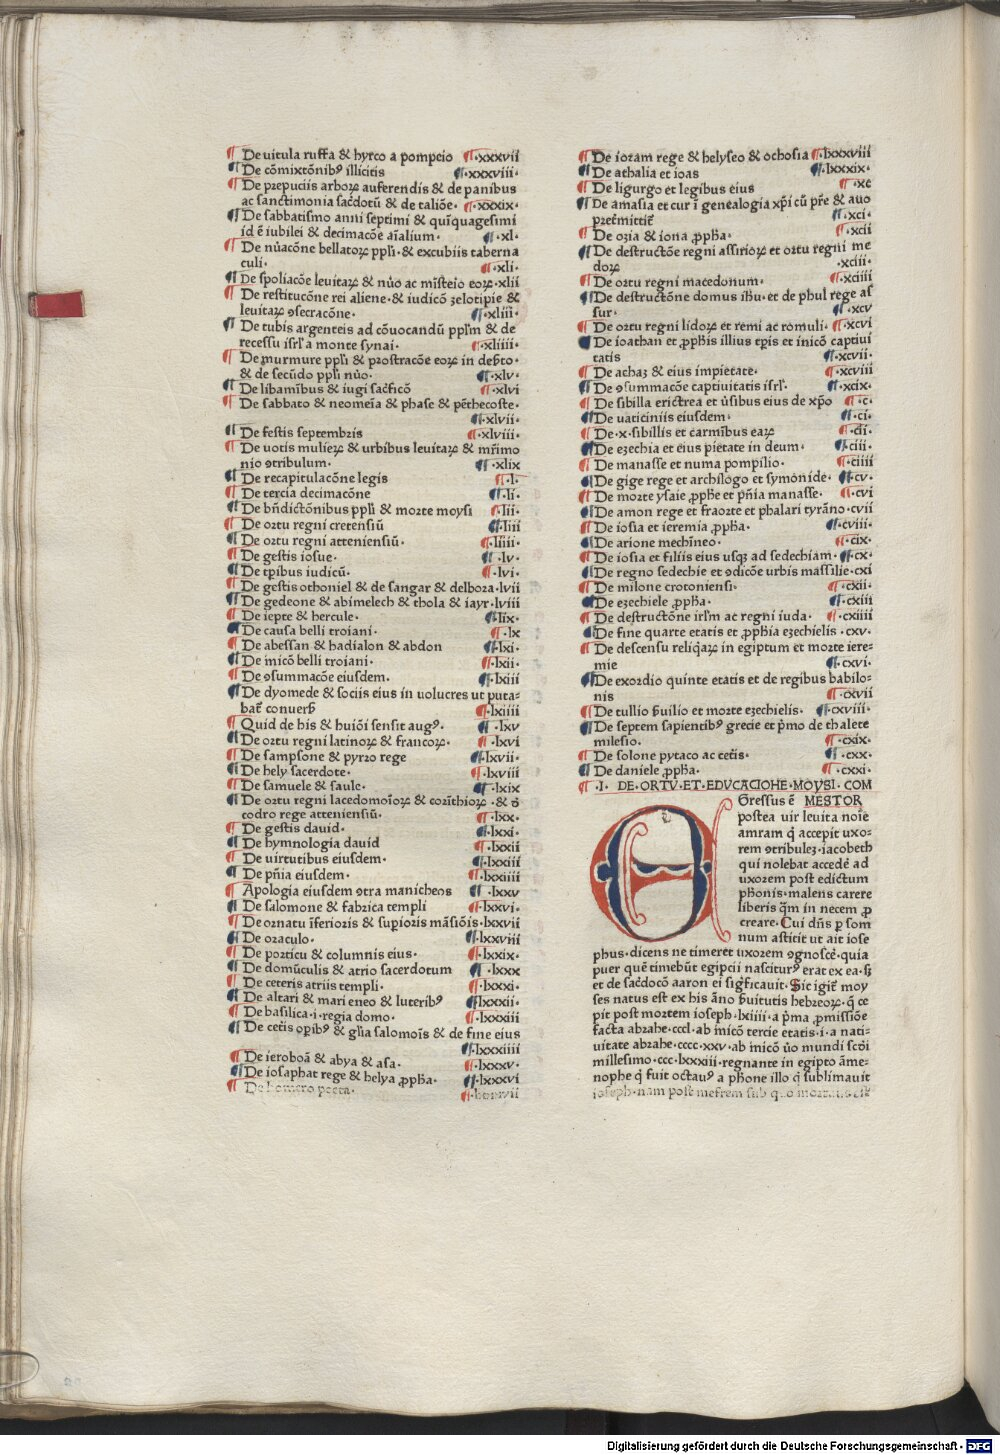 De uitula ruffa & hyrco a pompeio ·xxxvii
De cōmixtōnibꝰ illicitis ·xxxviii·
De prepuciis arborꝝ auferendis & de panibus
ac sanctimonia sac̄dotū & de taliōe· ·xxxix·
De sabbatismo anni septimi & quīquagesimi
id ē iubilei & decimacōe aīalium· ·xl·
De nūacōne bellatorꝝ ppl̄i· & excubiis taberna
culi· ·xli·
De spoliacōe leuitarꝝ & nūo ac mīsteīo eorꝝ·xlii
De restitucōne rei aliene· & iudicō zelotipie &
leuitarꝝ ꝯsecracōne· ·xliii·
De tubis argenteis ad cōuocandū ppl̄m & de
recessu isrl̄ a monte synai· ·xliiii·
De murmure ppl̄i & prostracōe eorꝝ in des̄to·
& de secūdo ppl̄i nūo· ·xlv·
De libamībus & iugi sac̄ficō ·xlvi
De sabbato & neomeīa & phase & pēthecoste·
·xlvii·
De festis septembris ·xlviii·
De uotis mulierꝝ & urbibus leuitarꝝ & mr̄imo
nio ꝯtribulum· ·xlix
De recapitulacōne legis ·l·
De tercia decimacōne ·li·
De bn̄dictōnibus ppl̄i & morte moysi ·lii·
De ortu regni cretensiū ·liii
De ortu regni atteniensiū· ·liiii·
De gestis iosue· ·lv·
De tp̄ibus iudicū· ·lvi·
De gestis othoniel & de sangar & delbora·lvii
De gedeone & abimelech & thola & iayr·lviii
De iepte & hercule· ·lix·
De causa belli troiani· ·lx
De abessan & hadialon & abdon ·lxi·
De inicō belli troiani· ·lxii·
De ꝯsummacōe eiusdem· ·lxiii
De dyomede & sociis eius in uolucres ut puta-
bat̄ conuers̄ ·lxiiii
Quid de his & huiōi sensit augꝰ· ·lxv
De ortu regni latinorꝝ & francorꝝ· ·lxvi
De sampsone & pyrro rege ·lxvii·
De hely sacerdote· ·lxviii
De samuele & saule· ·lxix
De ortu regni lacedomoīorꝝ & corīthiorꝝ· & d̄
codro rege atteniensiū· ·lxx·
De gestis dauid· ·lxxi·
De hymnologia dauid ·lxxii
De uirtutibus eiusdem· ·lxxiii
De pn̄ia eiusdem· ·lxxiiii
Apologia eiusdem ꝯtra manicheos ·lxxv
De salomone & fabrica templi ·lxxvi·
De ornatu īferioris & supioris māsiōis·lxxvii
De oraculo· ·lxxviii
De porticu & columnis eius· ·lxxix·
De domūculis & atrio sacerdotum ·lxxx
De ceteris atriis templi· ·lxxxi·
De altari & mari eneo & luteribꝰ ·lxxxii·
De basilica·i·regia domo· ·lxxxiii
De cet̄is op̄ibꝰ & gl̄ia salomoīs & de fine eius
·lxxxiiii
De ieroboā & abya & asa· ·lxxxv·
De iosaphat rege & helya ꝓpha· ·lxxxvi
De homero poeta·
De ioram rege & helyseo & ochosia ·lxxxviii
De athalia et ioas ·lxxxix·
De ligurgo et legibus eius ·xc
De amasia et cur ī genealogia xp̄i cū pr̄e & auo
pret̄mittit̄ ·xci·
De ozia & iona ꝓpha· ·xcii
De destructōe regni assiriorꝝ et ortu regni me
dorꝝ ·xciii·
De ortu regni macedonum· ·xciiii
De destructōne domus ih̄u·et de phul rege as
sur· ·xcv
De ortu regni lidorꝝ et remi ac romuli· ·xcvi
De ioathan et ꝓphis illius tp̄is et inicō captiui
tatis ·xcvii·
De achaz & eius impietate· ·xcviii
De ꝯsummacōe captiuitatis isrl̄· ·xcix·
De sibilla erictrea et ūsibus eius de xp̄o ·c·
De uaticiniis eiusdem· ·ci·
De·x·sibillis et carmībus earꝝ ·cii·
De ezechia et eius pietate in deum· ·ciii·
De manasse et numa pompilio· ·ciiii
De gige rege et archilogo et symonide· ·cv·
De morte ysaie ꝓphe et pn̄ia manasse· ·cvi
De amon rege et fraorte et phalari tyrāno·cvii
De iosia et ieremia ꝓpha· ·cviii·
De arione mechīneo· ·cix·
De iosia et filiis eius usqꝫ ad sedechiam· ·cx·
De regno sedechie et ꝯdicōe urbis massilie·cxi
De milone crotoniensi· ·cxii·
De ezechiele ꝓpha· ·cxiii
De destructōne irl̄m ac regni iuda· ·cxiiii
De fine quarte etatis et ꝓphia ezechielis ·cxv·
De descensu reliq̄arꝝ in egiptum et morte iere-
mie ·cxvi·
De exordio quinte etatis et de regibus babilo-
nis ·cxvii
De tullio s̄uilio et morte ezechielis· ·cxviii·
De septem sapientibꝰ grecie et p̄mo de thalete
milesio· ·cxix·
De solone pytaco ac cet̄is· ·cxx·
De daniele ꝓpha· ·cxxi·
·I· DE·ORTV·ET·EDVCACIOHE·MOYSI·COM
MESTOR
EGressus ē
postea uir leuita noīe
amram q̄ accepit uxo-
rem ꝯtribulez·iacobeth
qui nolebat acceder̄ ad
uxorem post edictum
ph̄onis·malens carere
liberis q̄m in necem ꝓ
creare·Cui dn̄s p som
num astitit ut ait iose
phus·dicens ne timeret uxorem ꝯgnosc̄e·quia
puer quē timebūt egipcii nascit̄urꝰ erat ex ea·sꝫ
et de sac̄docō aaron ei sigficauit·Sic igit̄ moy
ses natus est ex his āno s̄uitutis hebreorꝝ·q̄ ce
pit post mortem ioseph·lxiiii·a p̄ma ꝓmissiōe
facta abrahe·cccl·ab inicō tercie etatis·i·a nati-
uitate abrahe·cccc·xxv·ab inicō ūo mundi scd̄i
millesimo·ccc·lxxxiii·regnante in egipto āme-
nophe q̄ fuit octauꝰ a ph̄one illo q̄ sublimauit
ioseph·nam post mefrem sub quo
Digitalisierung gefördert durch die Deutsche Forschungsgemeinschaft - DFG